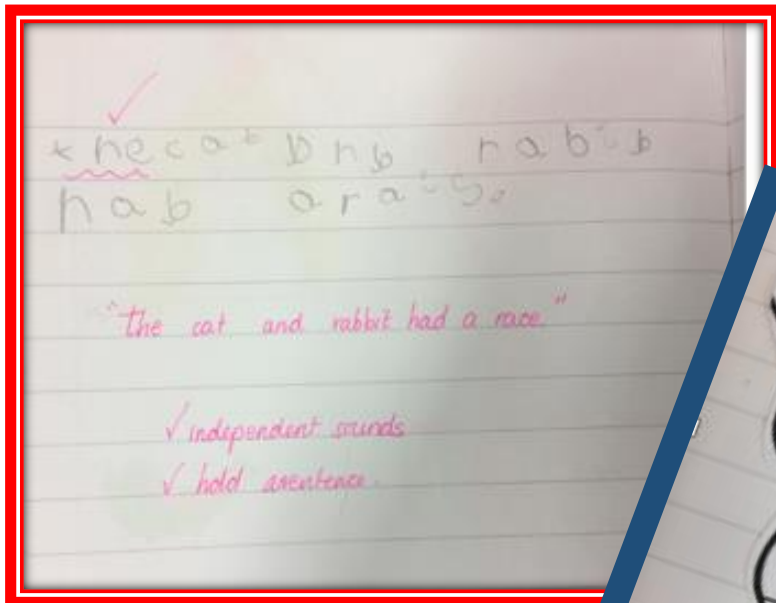 the cat bnb rabib
hab arais.
"the cat and rabbit had a race"
✓ independent sounds
✓ hold a sentence.